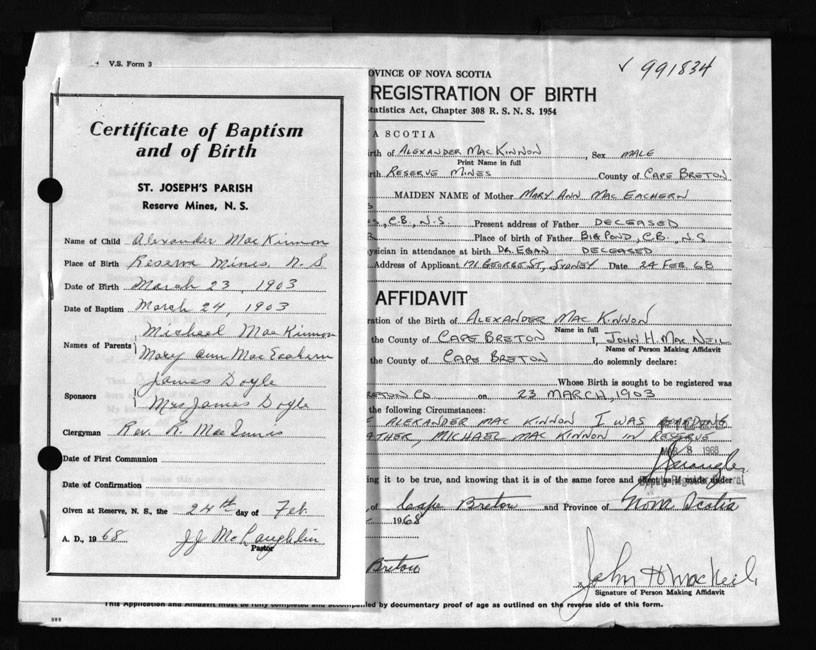 V.S. Form 3
Certificate of Baptism
and of Birth
ST. JOSEPH'S PARISH
Reserve Mines, N. S.
Name of Child Alexander MacKinnon
Place of Birth Reserve Mines, N.S
Date of Birth March 23, 1903
Date of Baptism March 24, 1903
Names of Parents Michael MacKinnon
Mary Ann MacEachern
Sponsors James Doyle
Mrs James Doyle
Clergyman Rev. R. MacInnis
Date of First Communion
Date of Confirmation
Given at Reserve, N. S., the 24th day of Feb.
A. D., 1968 JJ McLaughlin
Pastor
✓ 991834
OVINCE OF NOVA SCOTIA
REGISTRATION OF BIRTH
tatistics Act, Chapter 308 R. S. N. S. 1954
A SCOTIA
irth of ALEXANDER MACKINNON, Sex MALE
Print Name in full
rth RESERVE MINES County of CAPE BRETON
MAIDEN NAME of Mother MARY ANN MACEACHERN
S., C.B., N.S. Present address of Father DECEASED
Place of birth of Father BIG POND, C.B., N.S
ysician in attendance at birth DR. EGAN DECEASED
Address of Applicant 171 GEORGE ST, SYDNEY Date 24 FEB 68
AFFIDAVIT
ration of the Birth of ALEXANDER MACKINNON
Name in full
the County of CAPE BRETON I, JOHN H. MACNEIL
Name of Person Making Affidavit
e County of CAPE BRETON do solemnly declare:
Whose Birth is sought to be registered was
BRETON CO on 23 MARCH, 1903
the following Circumstances:
ALEXANDER MACKINNON I WAS BOARDING
FATHER, MICHAEL MACKINNON IN RESERVE
8 1968
ing it to be true, and knowing that it is of the same force and effect as if made under
of Cape Breton and Province of Nova Scotia
1968
Breton
John H MacNeil
Signature of Person Making Affidavit
This Application and Affidavit must be fully completed and accompanied by documentary proof of age as outlined on the reverse side of this form.